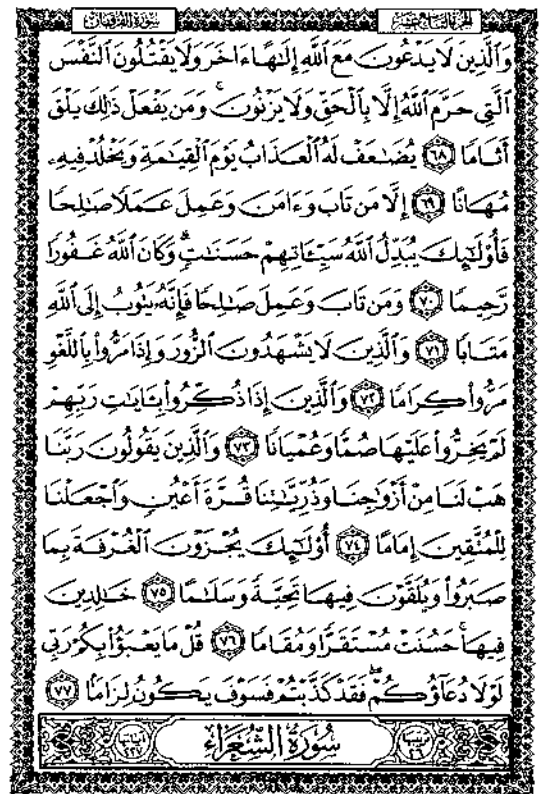 سُورَةُ الفُرْقَان
الجزء التاسع عشر
وَٱلَّذِينَ لَا يَدْعُونَ مَعَ ٱللَّهِ إِلَٰهًا ءَاخَرَ وَلَا يَقْتُلُونَ ٱلنَّفْسَ
ٱلَّتِى حَرَّمَ ٱللَّهُ إِلَّا بِٱلْحَقِّ وَلَا يَزْنُونَ ۚ وَمَن يَفْعَلْ ذَٰلِكَ يَلْقَ
أَثَامًا ٦٨ يُضَٰعَفْ لَهُ ٱلْعَذَابُ يَوْمَ ٱلْقِيَٰمَةِ وَيَخْلُدْ فِيهِۦ
مُهَانًا ٦٩ إِلَّا مَن تَابَ وَءَامَنَ وَعَمِلَ عَمَلًا صَٰلِحًا
فَأُو۟لَٰٓئِكَ يُبَدِّلُ ٱللَّهُ سَيِّـَٔاتِهِمْ حَسَنَٰتٍ ۗ وَكَانَ ٱللَّهُ غَفُورًا
رَّحِيمًا ٧٠ وَمَن تَابَ وَعَمِلَ صَٰلِحًا فَإِنَّهُۥ يَتُوبُ إِلَى ٱللَّهِ
مَتَابًا ٧١ وَٱلَّذِينَ لَا يَشْهَدُونَ ٱلزُّورَ وَإِذَا مَرُّوا۟ بِٱللَّغْوِ
مَرُّوا۟ كِرَامًا ٧٢ وَٱلَّذِينَ إِذَا ذُكِّرُوا۟ بِـَٔايَٰتِ رَبِّهِمْ
لَمْ يَخِرُّوا۟ عَلَيْهَا صُمًّا وَعُمْيَانًا ٧٣ وَٱلَّذِينَ يَقُولُونَ رَبَّنَا
هَبْ لَنَا مِنْ أَزْوَٰجِنَا وَذُرِّيَّٰتِنَا قُرَّةَ أَعْيُنٍ وَٱجْعَلْنَا
لِلْمُتَّقِينَ إِمَامًا ٧٤ أُو۟لَٰٓئِكَ يُجْزَوْنَ ٱلْغُرْفَةَ بِمَا
صَبَرُوا۟ وَيُلَقَّوْنَ فِيهَا تَحِيَّةً وَسَلَٰمًا ٧٥ خَٰلِدِينَ
فِيهَا ۚ حَسُنَتْ مُسْتَقَرًّا وَمُقَامًا ٧٦ قُلْ مَا يَعْبَؤُا۟ بِكُمْ رَبِّى
لَوْلَا دُعَآؤُكُمْ ۖ فَقَدْ كَذَّبْتُمْ فَسَوْفَ يَكُونُ لِزَامًۢا ٧٧
سُورَةُ الشُّعَرَاءِ